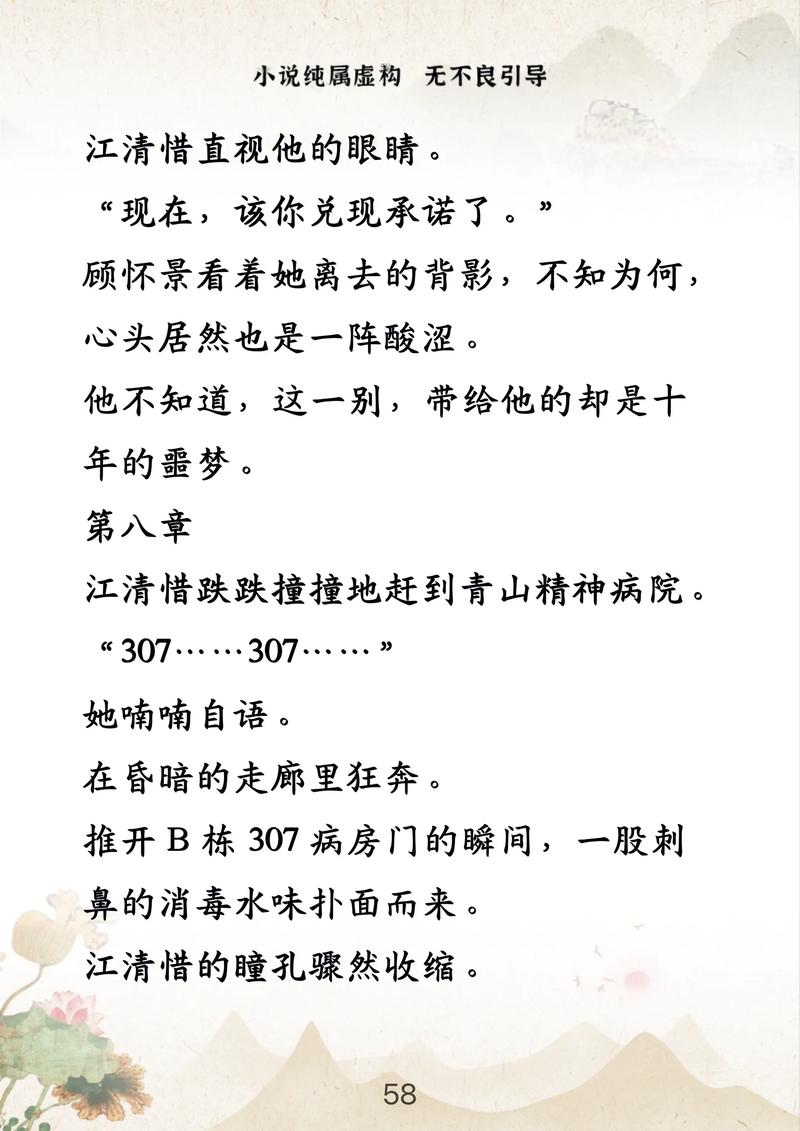 小说纯属虚构 无不良引导
江清惜直视他的眼睛。
“现在，该你兑现承诺了。”
顾怀景看着她离去的背影，不知为何，
心头居然也是一阵酸涩。
他不知道，这一别，带给他的却是十
年的噩梦。
第八章
江清惜跌跌撞撞地赶到青山精神病院。
“307……307……”
她喃喃自语。
在昏暗的走廊里狂奔。
推开 B 栋 307 病房门的瞬间，一股刺
鼻的消毒水味扑面而来。
江清惜的瞳孔骤然收缩。
58